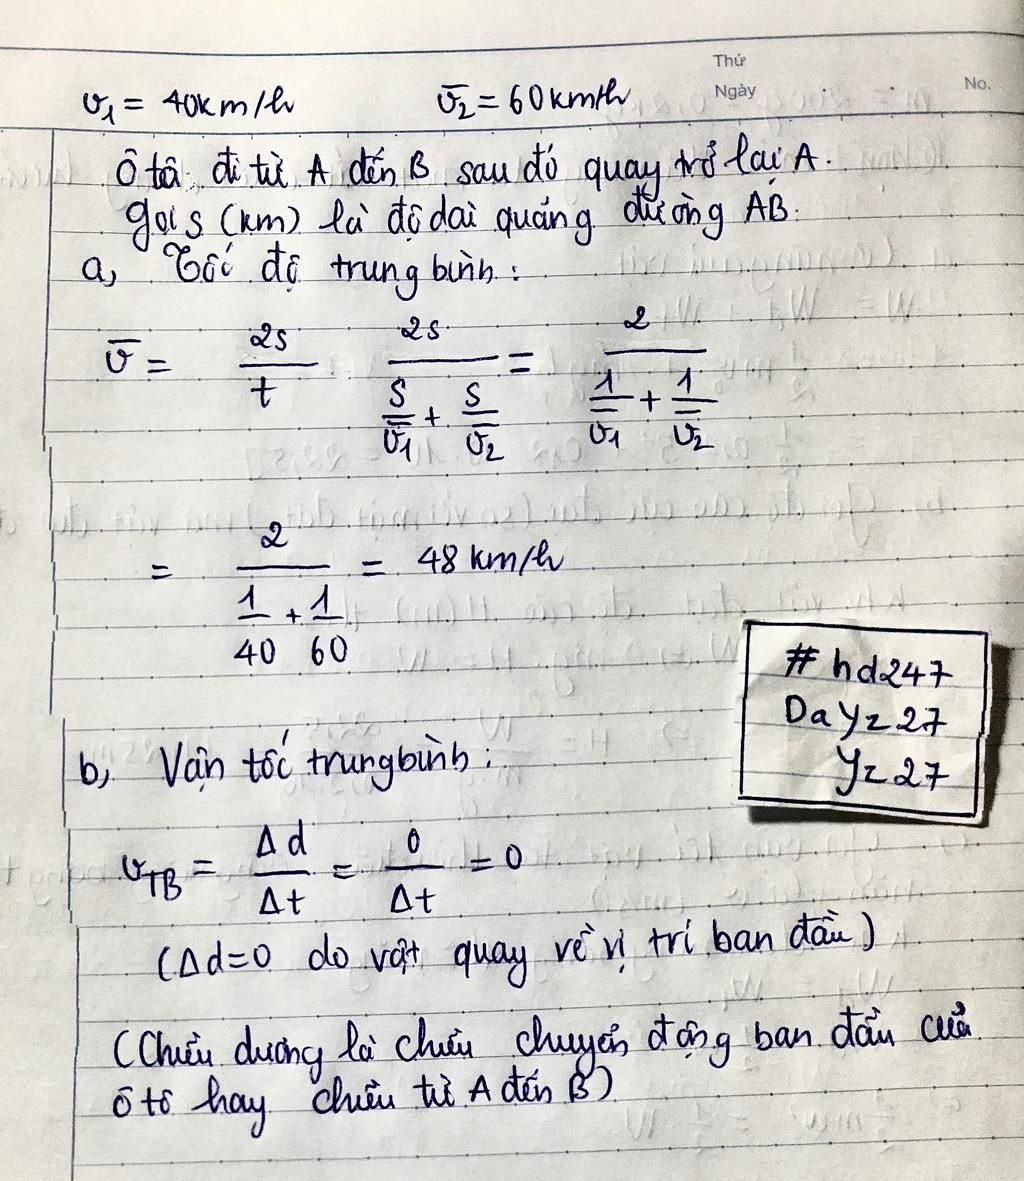 Thứ
Ngày
No.
v₁ = 40km/h v̅₂ = 60km/h
Ô tô đi từ A đến B sau đó quay trở lại A.
gọi s (km) là độ dài quãng đường AB.
a, Tốc độ trung bình:
v̅ = 2s/t 2s/(s/v̅₁ + s/v̅₂) = 2/(1/v̅₁ + 1/v̅₂)
= 2/(1/40 + 1/60) = 48 km/h
#hd247
DaYz27
Yz27
b, Vận tốc trung bình:
v_TB = Δd/Δt = 0/Δt = 0
(Δd=0 do vật quay về vị trí ban đầu)
(Chiều dương là chiều chuyển động ban đầu của
ô tô hay chiều từ A đến B)